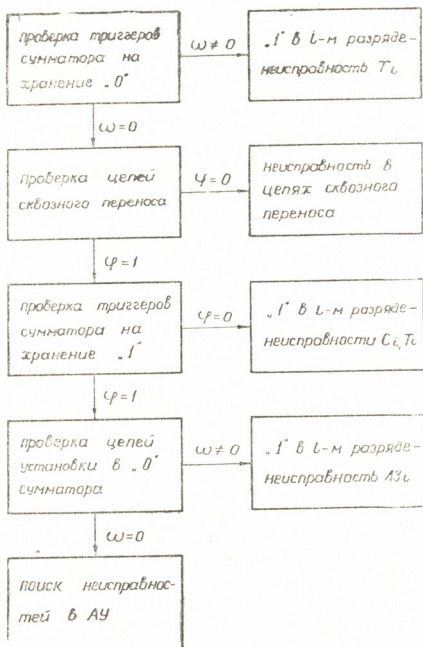 проверка триггеров
сумматора на
хранение „0"
ω≠0
„1" в i-м разряде-
неисправность Ti
ω=0
проверка цепей
сквозного переноса
φ=0
неисправность в
цепях сквозного
переноса
φ=1
проверка триггеров
сумматора на
хранение „1"
φ=0
„1" в i-м разряде-
неисправности Ci, Ti
φ=1
проверка цепей
установки в „0"
сумматора
ω≠0
„1" в i-м разряде-
неисправность
ω=0
поиск неисправнос-
тей в АУ